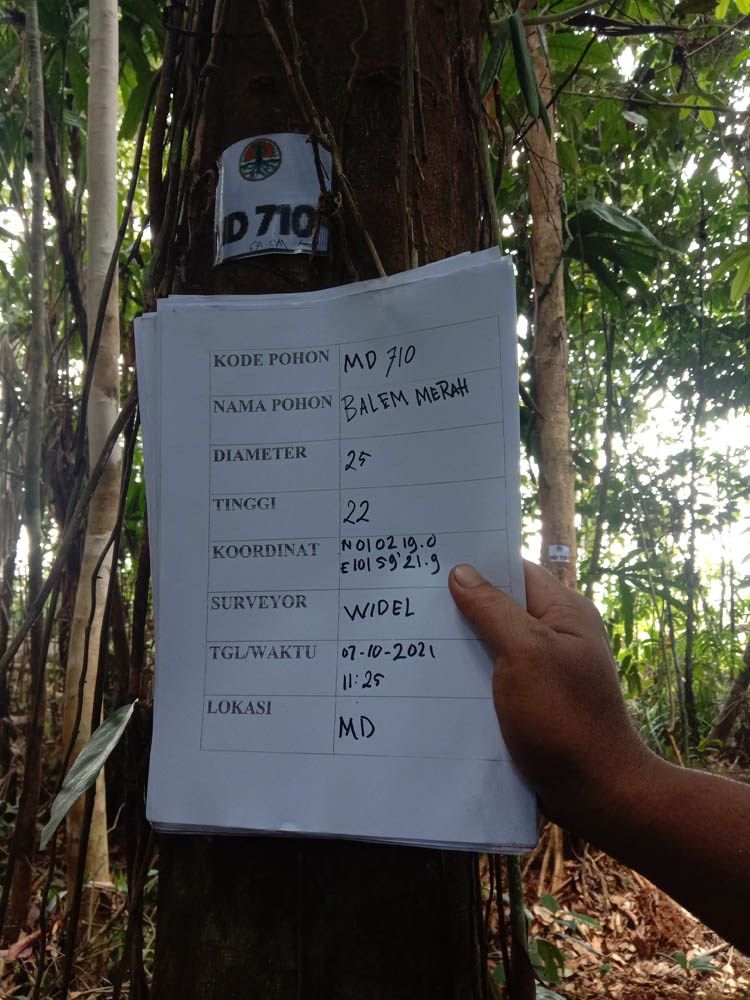 MD 710
KODE POHON MD 710
NAMA POHON BALEM MERAH
DIAMETER 25
TINGGI 22
KOORDINAT N 01 02 19.0
E 101 59' 21.9
SURVEYOR WIDEL
TGL/WAKTU 07-10-2021
11:25
LOKASI MD